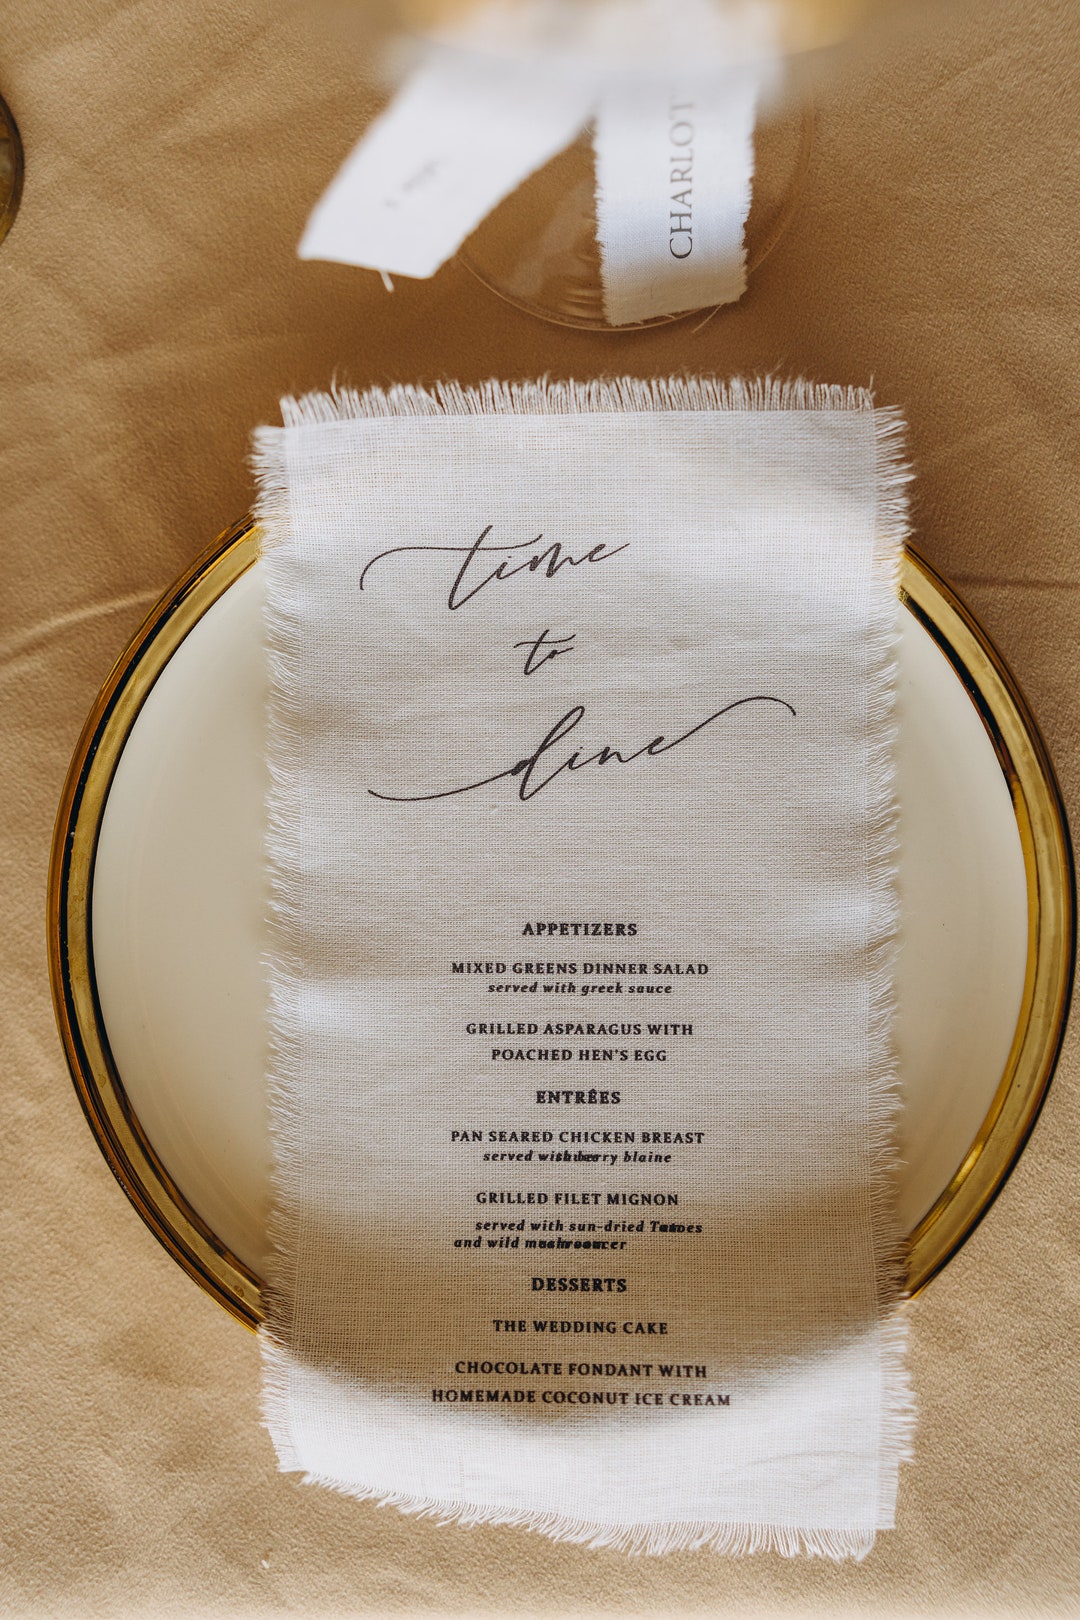 CHARLOT
time
to
dine
APPETIZERS
MIXED GREENS DINNER SALAD
served with greek sauce
GRILLED ASPARAGUS WITH
POACHED HEN'S EGG
ENTRÊES
PAN SEARED CHICKEN BREAST
served blaine
GRILLED FILET MIGNON
served with sun-dried
and wild
DESSERTS
THE WEDDING CAKE
CHOCOLATE FONDANT WITH
HOMEMADE COCONUT ICE CREAM